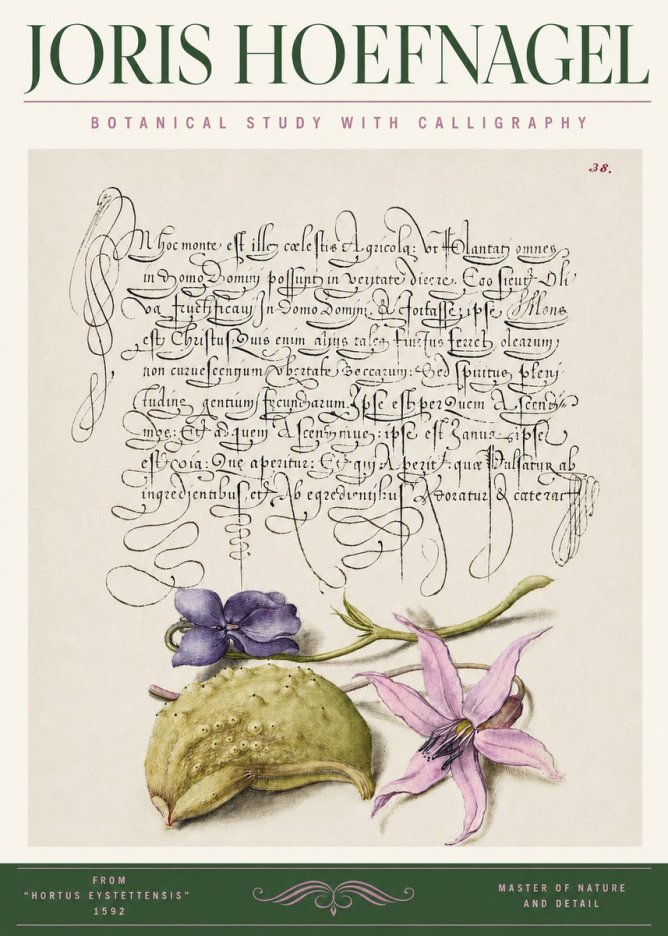 JORIS HOEFNAGEL
BOTANICAL STUDY WITH CALLIGRAPHY
38.
hoc monte est illę cælestis Agricola: vt Plantati omnes
in Domo Domini possunt in veritate dicere. Ego sicut Oli
va fructificaui In Domo Domini. & fortasse ipse Mons
est Christus. Quis enim alius tales fructus ferret olearum
non curuescentum Vbertate Sed spiritus pleni
tudine gentium fecundarum. Ipse est per Quem Ascendi
mus: Et ad quem Ascendimus: ipse est Ianua: ipse
est Que aperitur: Et qui Aperit: quæ Pulsatur ab
ingredientibus, et Ab egredientibus Adoratur & cætera
FROM
"HORTUS EYSTETTENSIS"
1592
MASTER OF NATURE
AND DETAIL